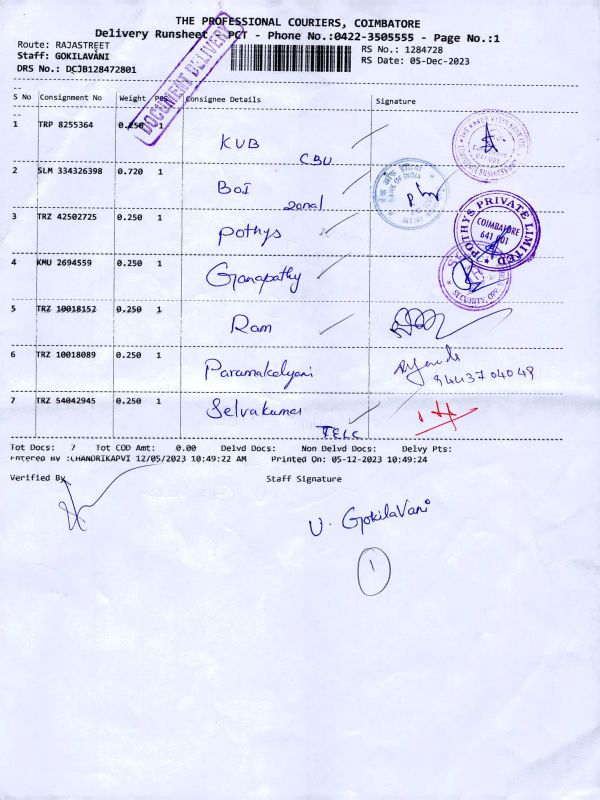 THE PROFESSIONAL COURIERS, COIMBATORE
Delivery Runsheet PCT - Phone No.:0422-3505555 - Page No.:1
Route: RAJASTREET
RS No.: 1284728
Staff: GOKILAVANI
RS Date: 05-Dec-2023
DRS No.: DCJB128472801
DOCUMENT DELIVERY
S No Consignment No Weight PCS Consignee Details Signature
1 TRP 8255364 0.250 1 KUB CBU
2 SLM 334326398 0.720 1 BOI zonal
BANK OF INDIA
3 TRZ 42502725 0.250 1 Pothys
POTHYS PRIVATE LIMITED
COIMBATORE
641 001
4 KMU 2694559 0.250 1 Ganapathy
SECURITY
5 TRZ 10018152 0.250 1 Ram
6 TRZ 10018089 0.250 1 Paramakalyani
9443704049
7 TRZ 54042945 0.250 1 Selvakumar TELC
Tot Docs: 7 Tot COD Amt: 0.00 Delvd Docs: Non Delvd Docs: Delvy Pts:
Entered By :CHANDRIKAPVI 12/05/2023 10:49:22 AM Printed On: 05-12-2023 10:49:24
Verified By Staff Signature
V. GokilaVani
1